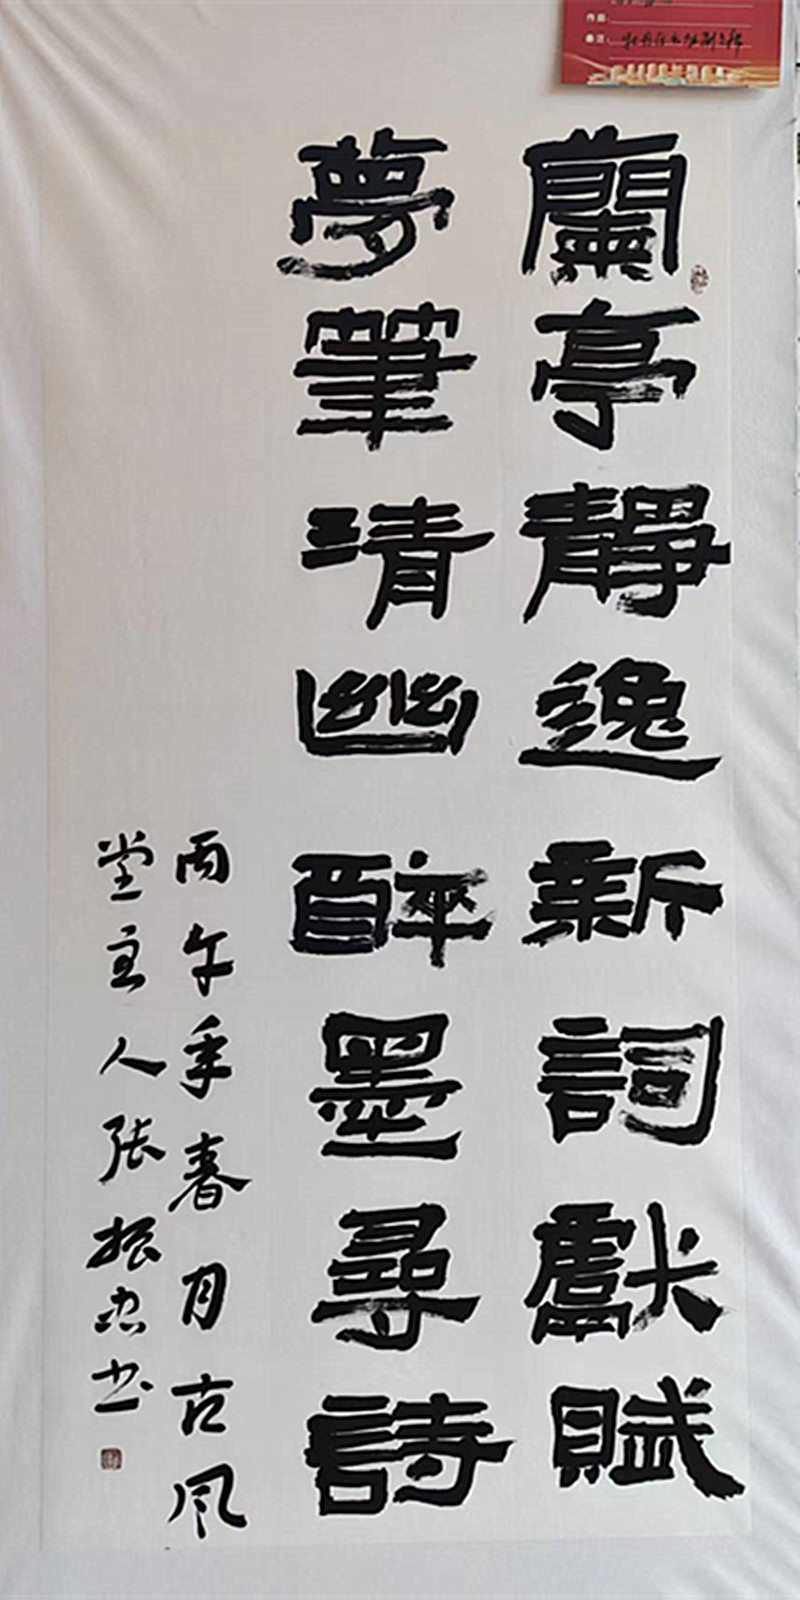 蘭亭靜逸新詞獻賦
夢筆清幽醉墨尋詩
丙午年春月古風
堂主人張振忠书
作品：
备注：